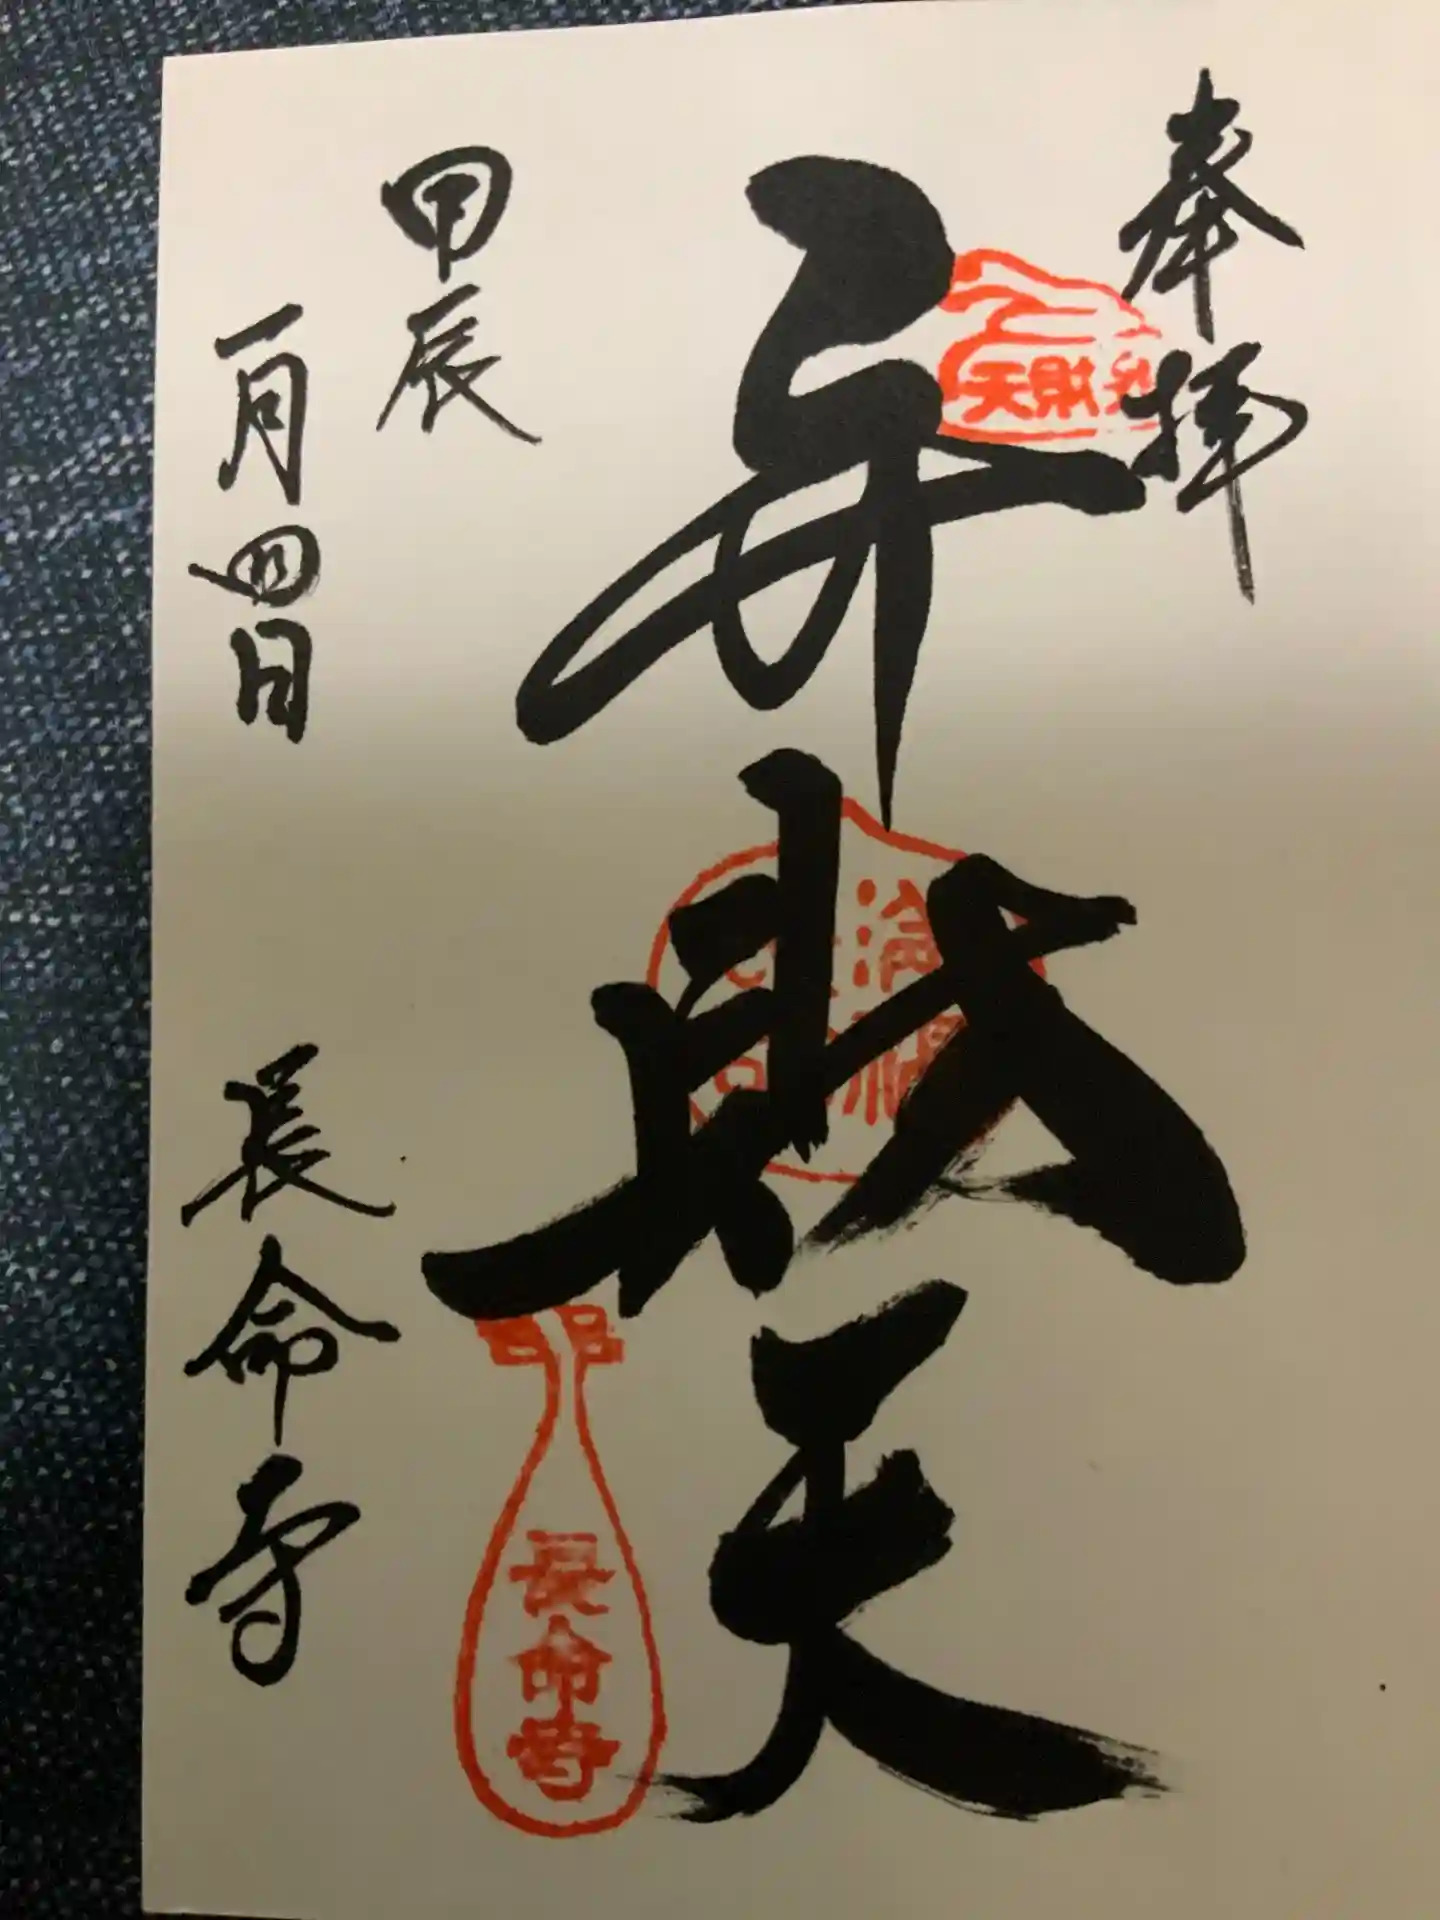 奉拝
弁財天
甲辰
一月四日
長命寺
天財弁
長命寺